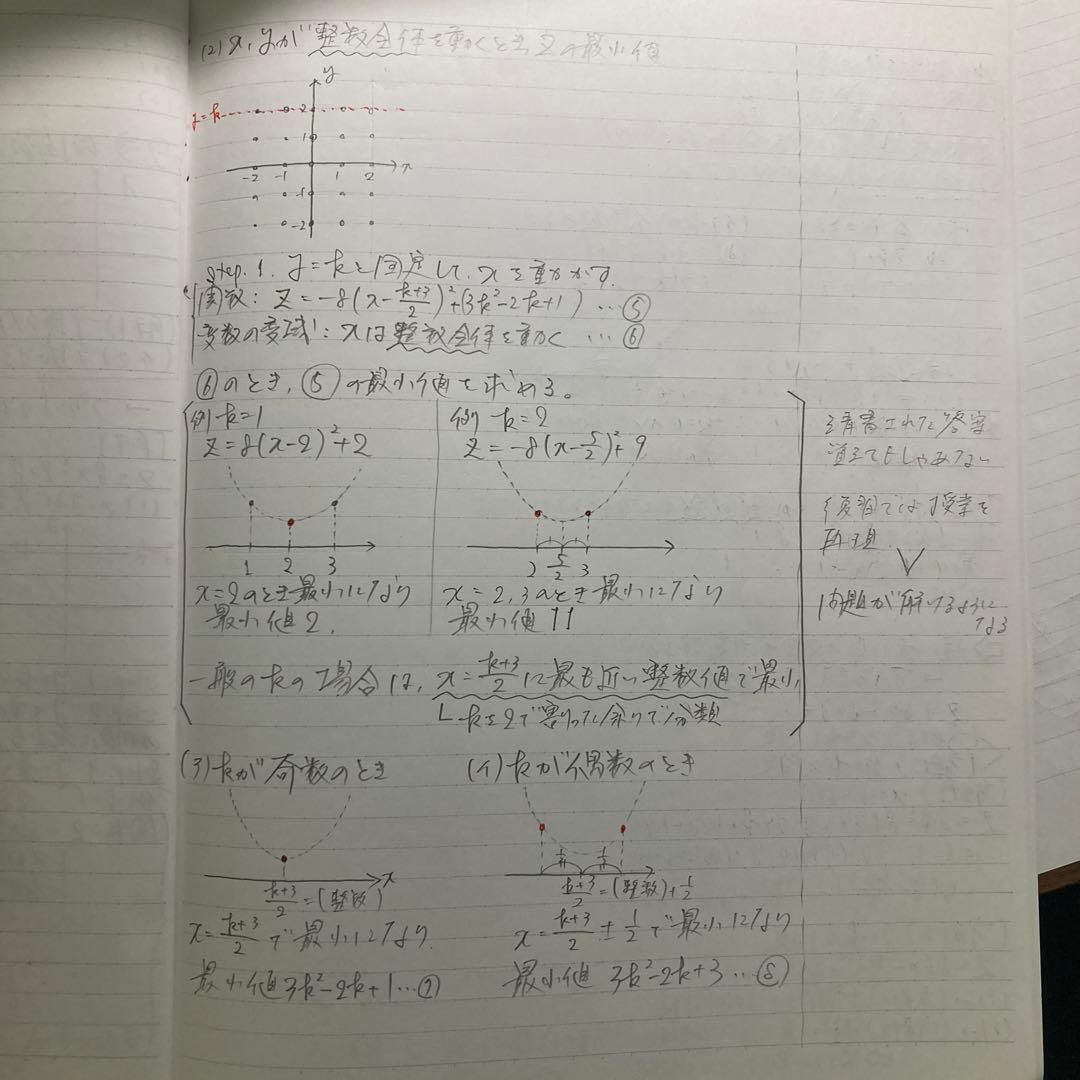 (2) x, yが整数全体を動くとき, zの最小値
y
y=k
2
1
x
-2 -1 1 2
-1
-2
Step.1. y=kと固定して、xを動かす.
関数: z=-8(x-\frac{k+3}{2})²+(3k²-2k+1) …⑤
変数の変域: xは整数全体を動く …⑥
⑥のとき, ⑤の最小値を求める。
例 k=1
z=8(x-2)²+2
1 2 3
x=2のとき最小になり
最小値2.
例 k=2
z=-8(x-\frac{5}{2})²+9
2 \frac{5}{2} 3
x=2,3のとき最小になり
最小値11
一般のkの場合は, x=\frac{k+3}{2}に最も近い整数値で最小,
kを2で割った余りで分類
清書された答案
復習では、授業を
再現
問題が解けるように
なる
(ア) kが奇数のとき
x
\frac{k+3}{2}=(整数)
x=\frac{k+3}{2}で最小になり
最小値3k²-2k+1…⑦
(イ) kが偶数のとき
\frac{k+3}{2}=(整数)+\frac{1}{2}
x=\frac{k+3}{2}±\frac{1}{2}で最小になり
最小値 3k²-2k+3…⑧